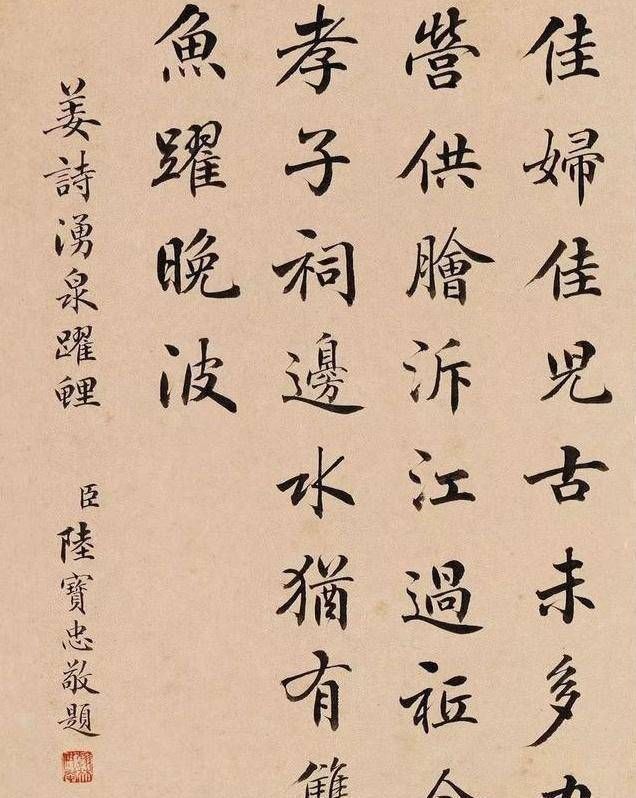 佳婦佳兒古未多力
營供膾泝江過祗今
孝子祠邊水猶有雙
魚躍晚波
姜詩湧泉躍鯉
臣陸寶忠敬題